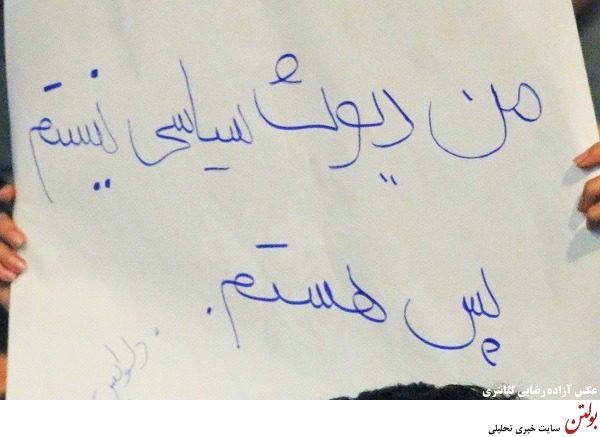 من دیوث سیاسی نیستم
پس هستم.
دلواپس
عکس آزاده رضایی کلانتری
بولتن سایت خبری تحلیلی